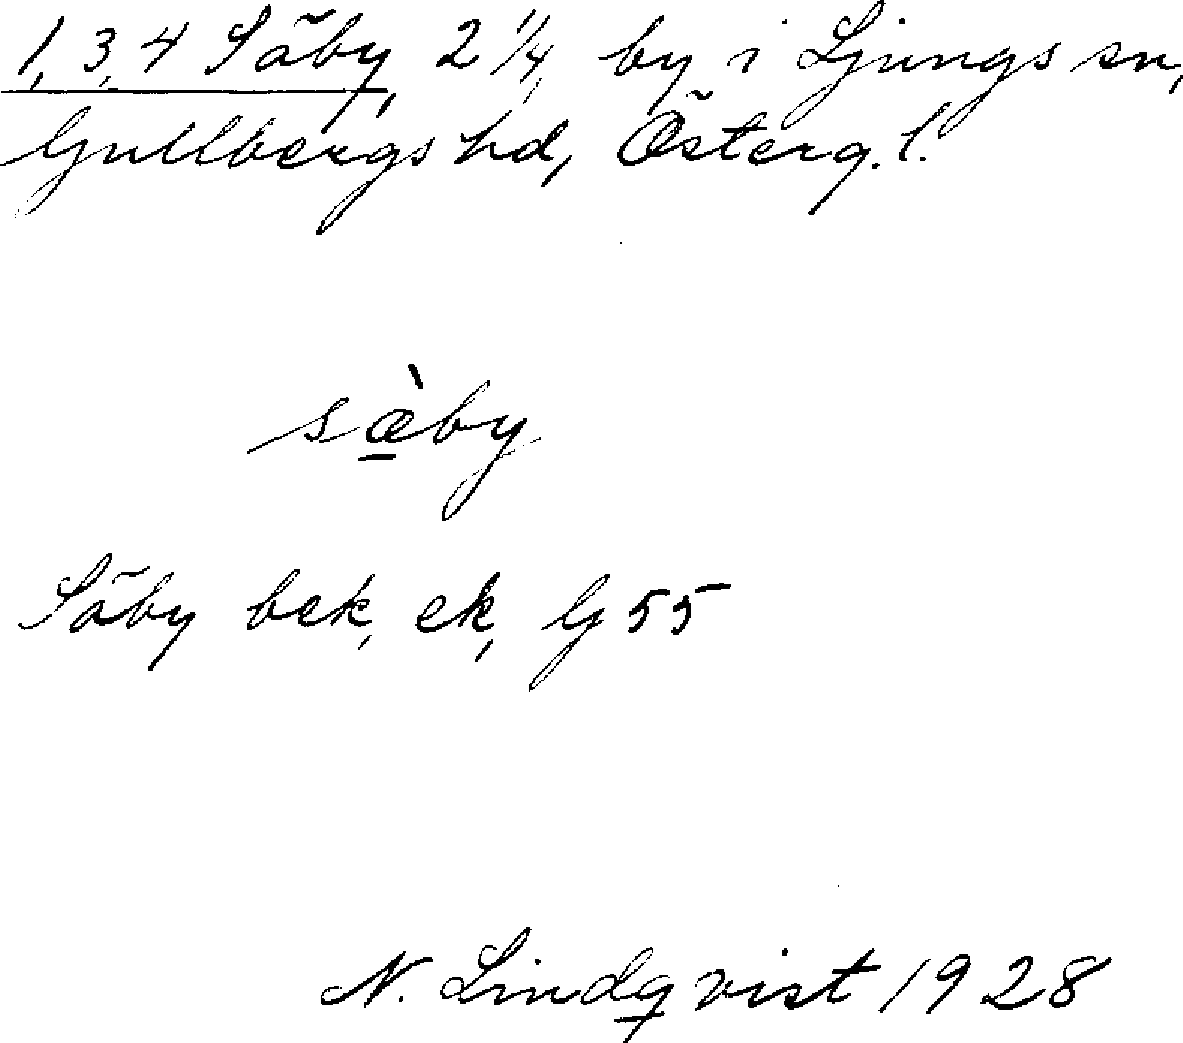 1, 3, 4 Säby, 2 1/4, by i Ljungs sn,
Gullbergs hd, Österg. l.
sæ̀by
Säby bek, ek, G 55
N. Lindqvist 1928